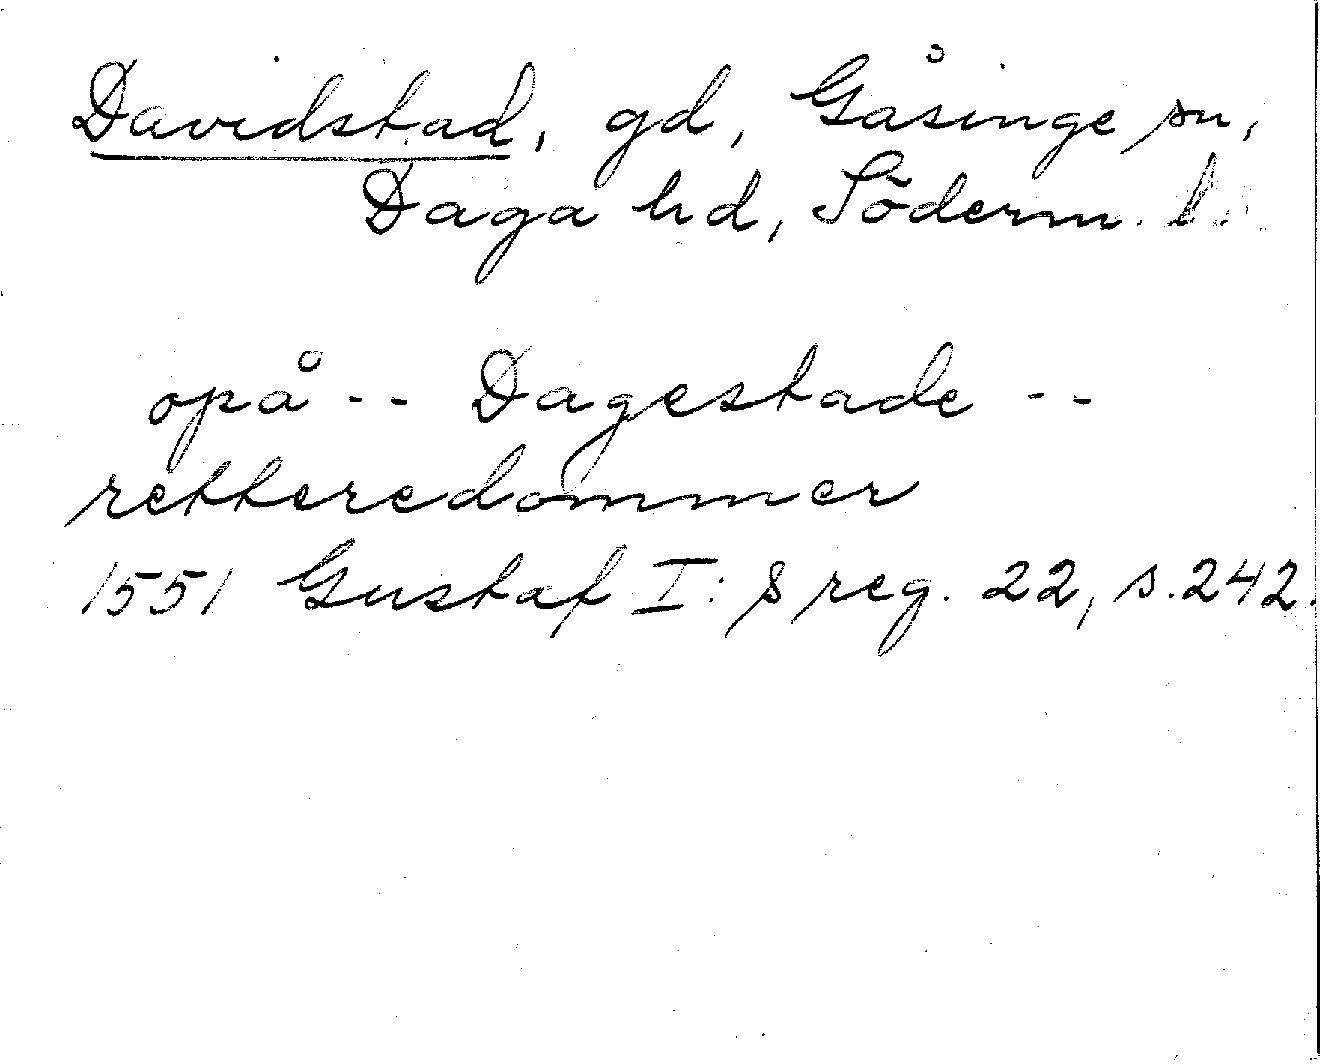 Davidstad, gd, Gåsinge sn,
Daga hd, Söderm. l.
opå -- Dagestade --
rettheredommer
1551 Gustaf I:s reg. 22, s. 242.